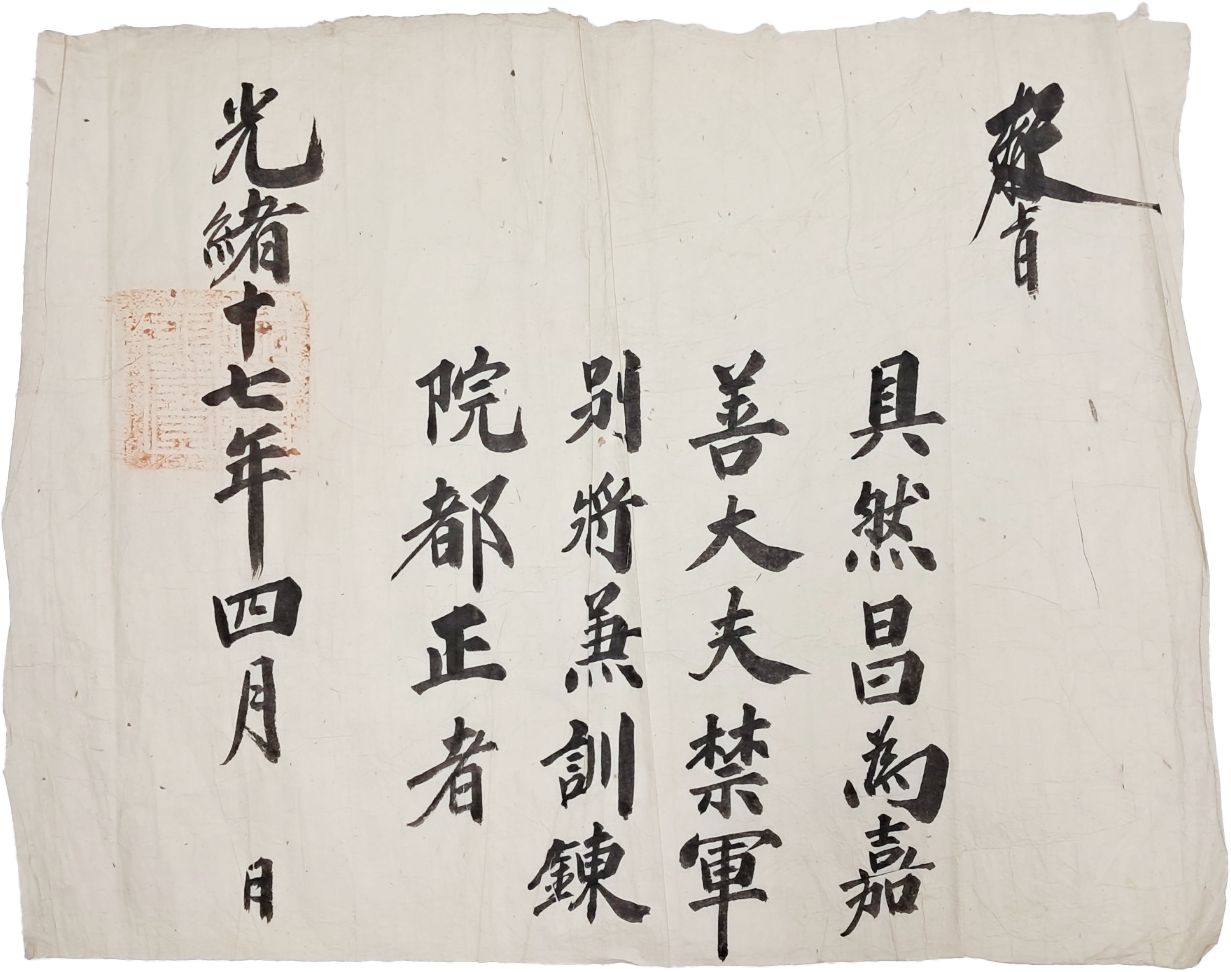 敎旨
具然昌為嘉
善大夫禁軍
別將兼訓鍊
院都正者
光緖十七年四月 日